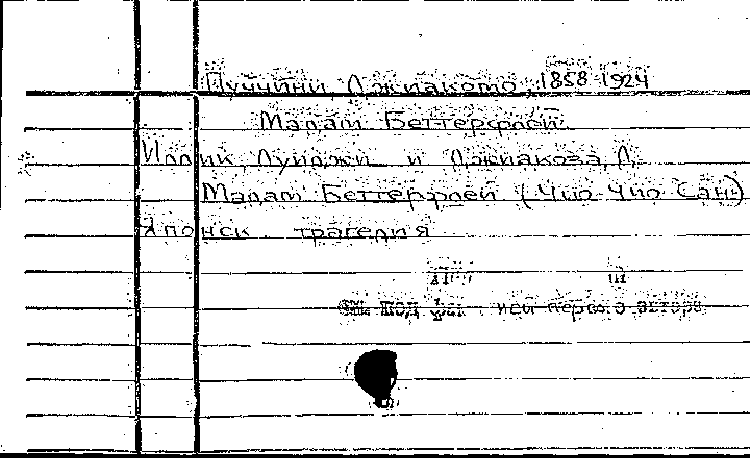 Пуччини, Джиакомо, 1858-1924
Мадам Беттерфлей.
Иллик, Луиджи и Джиакоза, Д.
Мадам Беттерфлей (Чио-Чио-Сан)
Японск. трагедия
см. под фам первого автора